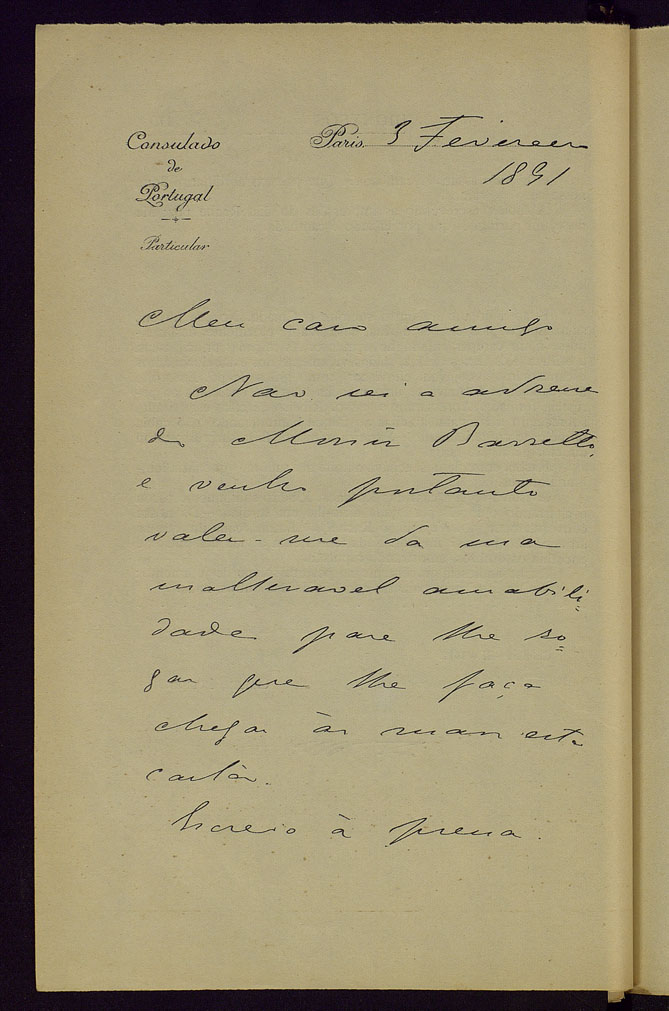 Consulado
de
Portugal
Particular
Paris, 3 Fevereiro
1891
Meu caro amigo
Nao sei a adresse
do Moniz Barretto,
e venho portanto
valer-me da sua
inalteravel amabili=
dade para lhe ro=
gar que lhe faça
chegar às mãos esta
carta.
Escrevo à pressa.